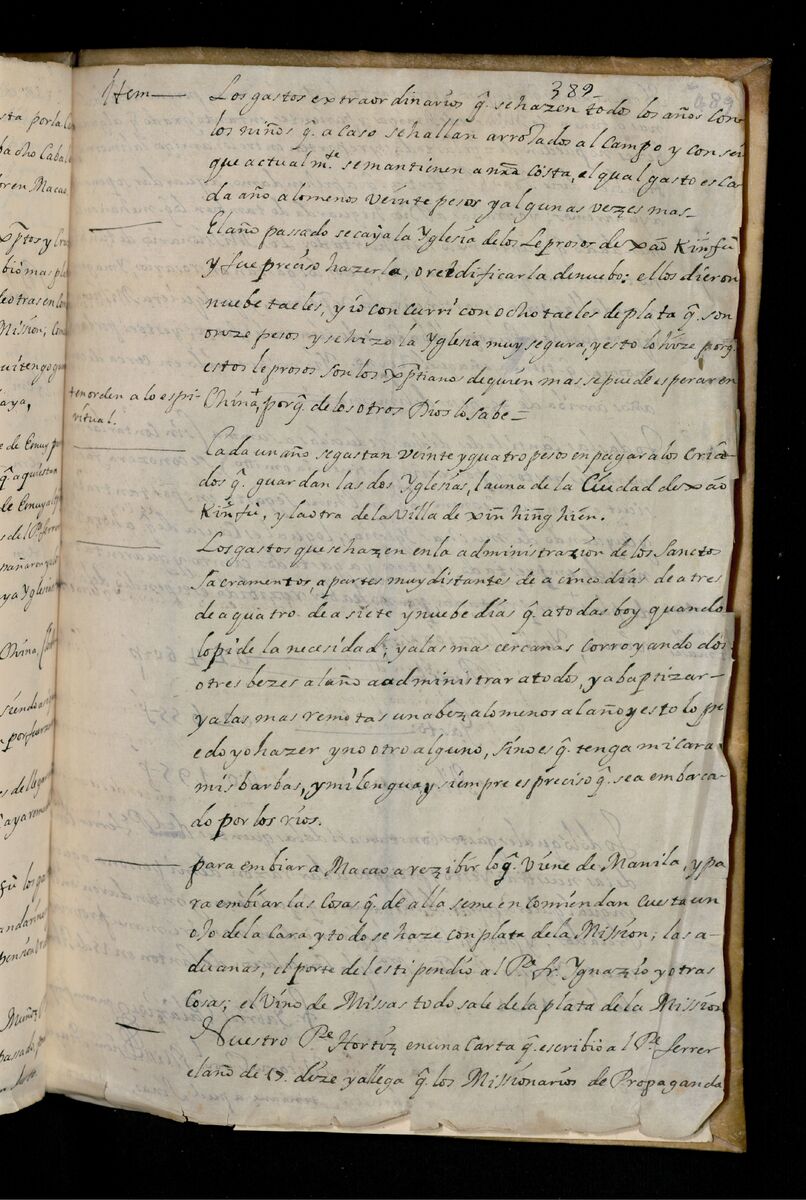 389
Ytem — Los gastos extraordinarios q̃. se hazen todos los años con
los niños q̃. a caso se hallan arrojados al campo y con seis
que actualm.te se mantienen a nrã costa, el qual gasto es ca
da año alomenos veinte pesos y algunas vezes mas —
El año passado se caýa la Yglesia de los Leprosos de xaõ Kinfù
y fue preciso hazerla, o reedificarla de nuebo: ellos dieron
nuebe taeles, y io concurri con ocho taeles de plata q̃. son
onze pesos y se hizo la Yglesia muy segura, y esto lo hize porq̃.
estos leprosos son los xp̃tianos de quien mas se puede esperar en
China+, porq̃. de los otros Dios lo sabe =
+en orden a lo espi-
ritual.
Cada un año se gastan veinte y quatro pesos en pagar a los cria-
dos q̃. guardan las dos Yglesias, la una de la Ciudad de xaõ
Kinfù, y la otra de la Villa de xin hing hien.
Los gastos que se hazen en la administrazion de los Sanctos
Sacramentos, a partes muy distantes de a cinco dias de a tres
de a quatro de a siete y nuebe dias q̃. a todas boy quando
lo pide la necesidad; y a las mas cercanas corro yo ando dos
o tres bezes al año a administrar a todos, y a baptizar —
y a las mas remotas una bez, alo menor al año y esto lo pu
edo yo hazer y no otro alguno, sino es q̃. tenga mi cara
mis barbas, y mi lengua, y siempre es preciso q̃. sea embarca-
do por los rios.
para embiar a Macao a rezibir lo q̃. viene de Manila, y pa
ra embiar las cosas q̃. de alla se me encomiendan cuesta un
ojo de la cara y todo se haze con plata de la Mission; las a-
duanas, el porte del estipendio al P.e fr. Ygnazio y otras
cosas; el vino de Missas todo sale de la plata de la Mission
Nuestro P.e Hortiz en una carta q̃. escribio al P.e ferrer
el año de 17. dize y allega q̃. los Missionarios de Propaganda